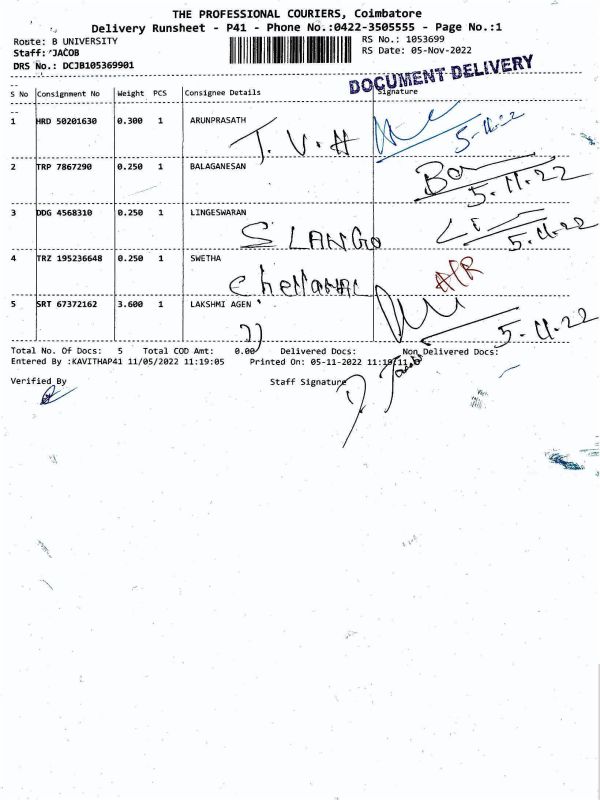 THE PROFESSIONAL COURIERS, Coimbatore
Delivery Runsheet - P41 - Phone No.:0422-3505555 - Page No.:1
Route: B UNIVERSITY RS No.: 1053699
Staff: JACOB RS Date: 05-Nov-2022
DRS No.: DCJB105369901
DOCUMENT DELIVERY
S No Consignment No Weight PCS Consignee Details Signature
1 HRD 50201630 0.300 1 ARUNPRASATH
T.V.H 5-11-22
2 TRP 7867290 0.250 1 BALAGANESAN
5.11.22
3 DDG 4568310 0.250 1 LINGESWARAN
S LANGO 5.11.22
4 TRZ 195236648 0.250 1 SWETHA
5 SRT 67372162 3.600 1 LAKSHMI AGEN
5-11-22
Total No. Of Docs: 5 Total COD Amt: 0.00 Delivered Docs: Non Delivered Docs:
Entered By :KAVITHAP41 11/05/2022 11:19:05 Printed On: 05-11-2022
Verified By Staff Signature